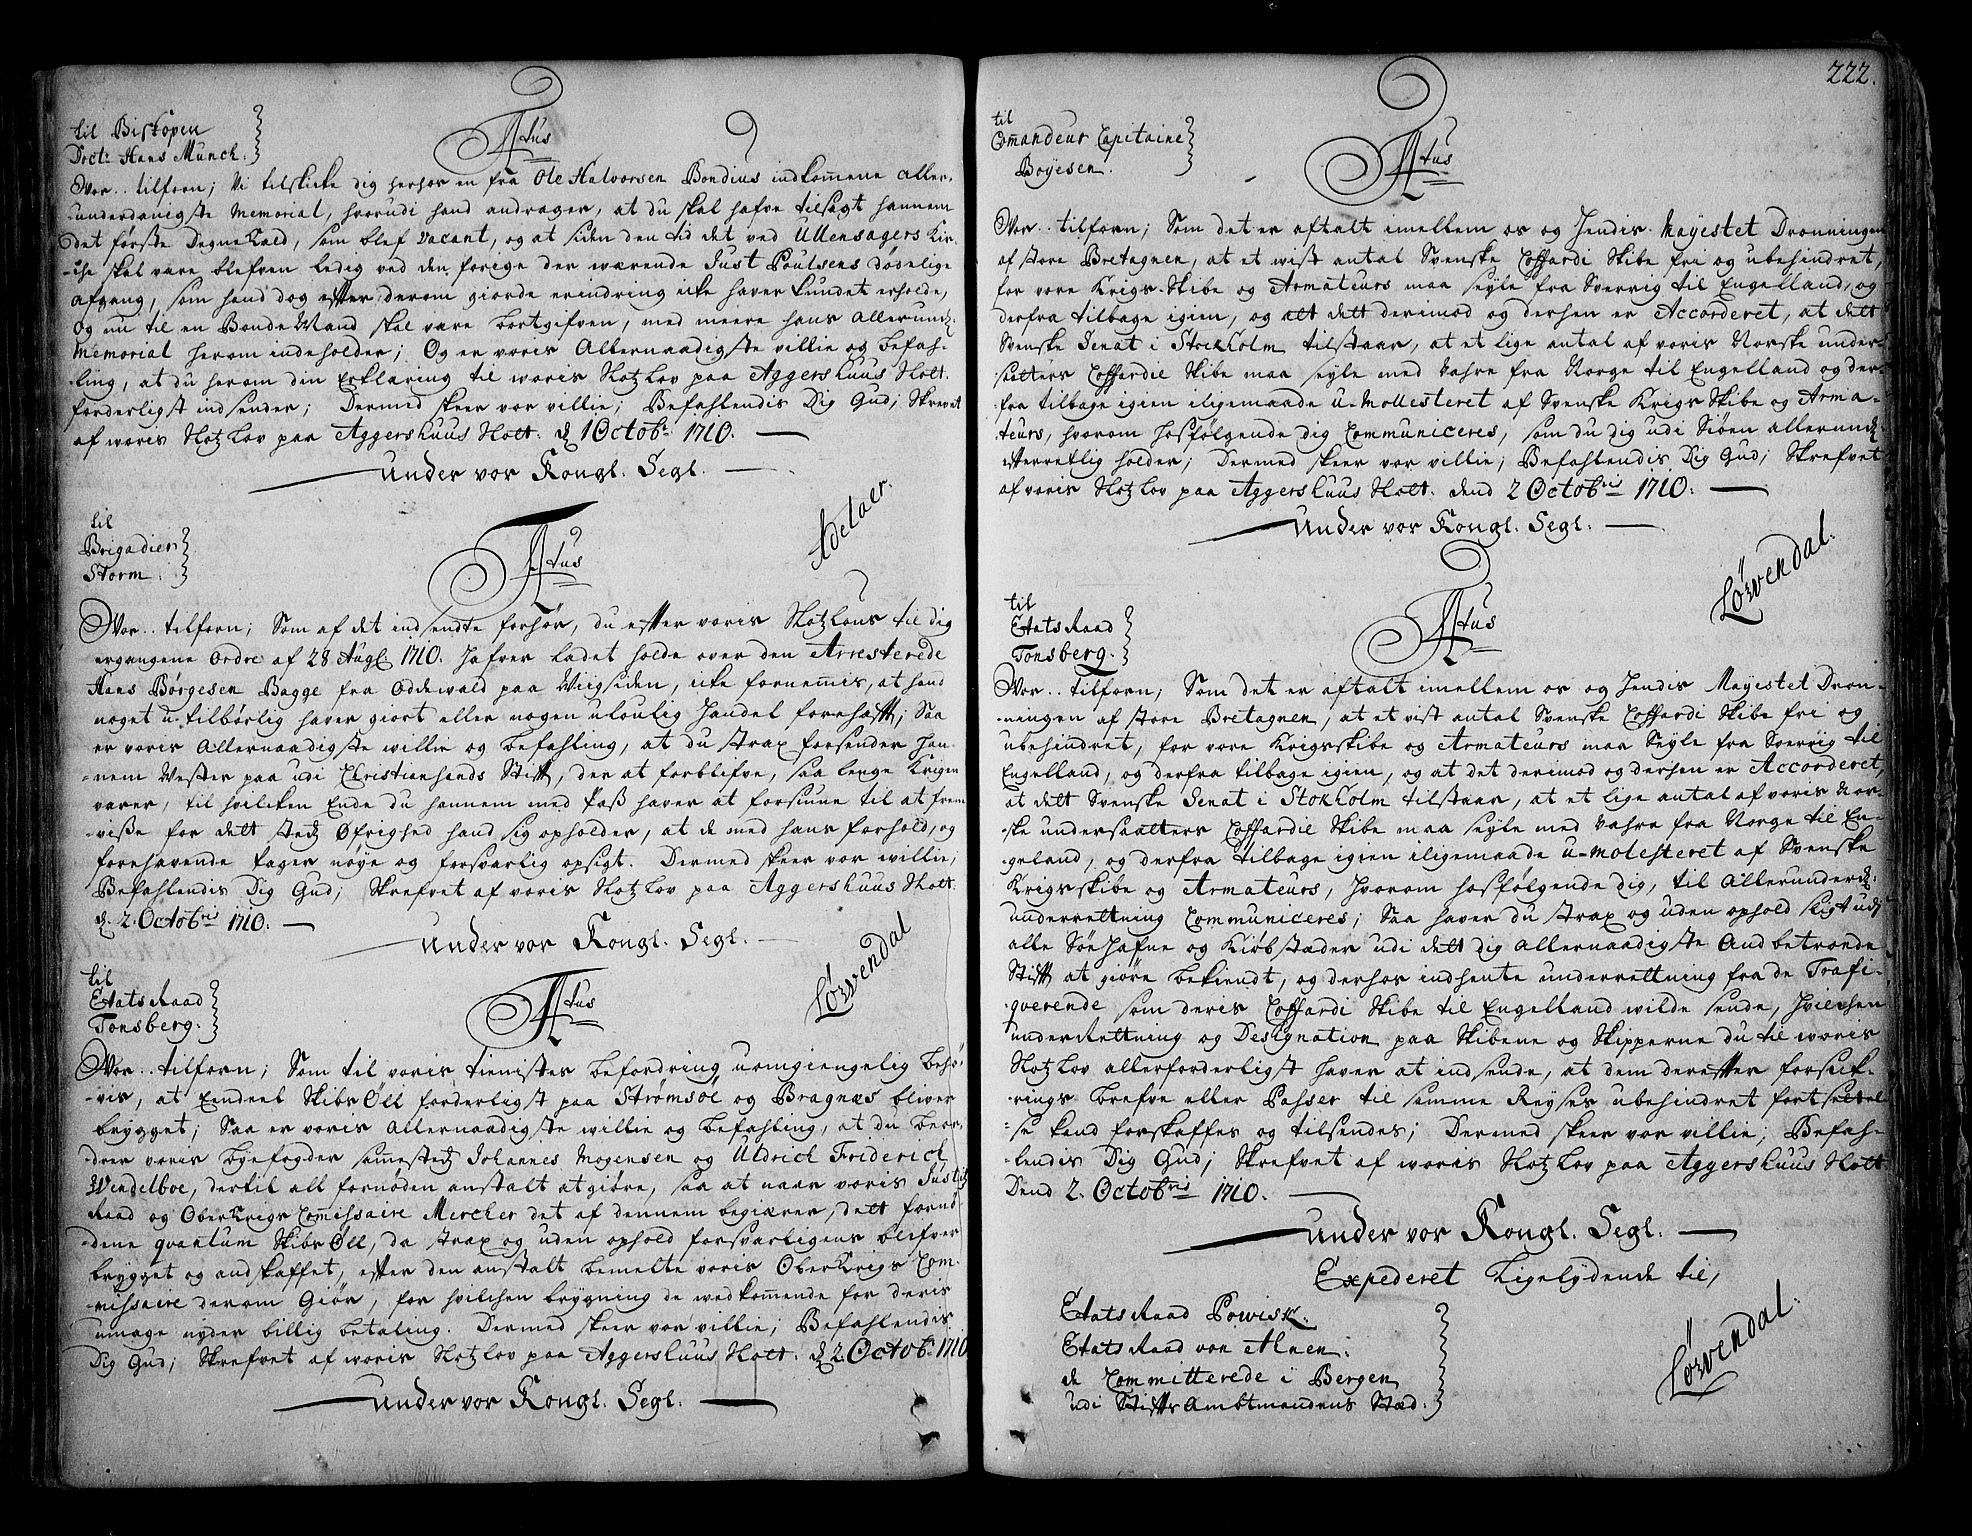 til Biskopen
Doct: Hans Munch.
F4tus
Vor.. tilforn; Vi tilskicke dig herhos en fra Ole Halvorsen Bondius indkommene aller-
underdanigste Memorial, hvorudi hand andrager, at du skal hafve tilsagt hannem
det første Degne Kald, som blef vacant, og at siden den tid det ved Ullensagers Kir-
-che skal være blefven ledig ved den forige der værende Just Poulsens dødelige
afgang, som hand dog efter derom giorde erindring icke haver kundet erholde,
og nu til en Bonde Mand skal vare bortgifven, med meere hans Allerund:
Memorial herom indeholder; Og er voris Allernaadigste villie og befah-
-ling, at du herom din Erklaring til woris Slotz Lov paa Aggershuus Slott.
forderligst indsender; Dermed skeer vor villie; Befahlendis Dig Gud; Skrevet
af woris Slotz Lov paa Aggershuus Slott. d 1 Octob: 1710.
Under vor Kongl. Segl.
Adelaer.
til
Brigadier
Storm.
F4tus
Vor.. tilforn; Som af det indsendte forhør, du efter voris Slotz Lous til dig
ergangene Ordre af 28 Augl 1710. hafver ladet holde over den Arresterede
Hans Børgesen Bagge fra Oddewald paa Wiigsiden, icke fornemmis, at hand
noget u-tilbørlig haver giort eller nogen ulovlig handel forehaft; Saa
er voris Allernaadigste willie og befahling, at du strax forsender han-
-nem Vester paa udi Christiansands Stift, der at forblifve, saa lenge Krigen
varer, til hvilcken Ende du hannem med Pass haver at forsiune til at frem-
-visse for dett steds Øfrighed hand sig opholder, at de med hans forhold, og
forehavende tager nøye og forsvarlig opsigt. Dermed skeer vor willie;
Befahlendis Dig Gud; Skrefvet af voris Slotz Lov paa Aggershuus Slott.
d. 2. Octobris 1710.
Under vor Kongl. Segl.
Løvendal
til
Etats Raad
Tonsberg.
F4tus
Vor.. tilforn; Som til voris tienistes befordring uomgiengelig behø-
-vis, at Eendeel Skibs Øll forderligst paa Strømsøe og Bragnæs bliver
brygget; Saa er voris Allernaadigste willie og befahling, at du beor-
drer voris byefogder sammesteds Johannes Mogensen og Uldrich Friderich
Wendelboe, dertil all fornøden anstalt at giøre, saa at naar voris Justitz
Raad og Ober Krigs Commissaire Mercker det af dennem begiærer, dett fornø-
-dene qvantum Skibs Øll, da strax og uden ophold forsvarligens blifver
brygget og andskaffet, efter den anstalt bemelte voris Ober Krigs Com-
missaire derom Giør, for hvilchen brygning de wedkommende for deris
umage nyder billig betaling. Dermed skeer vor villie; Befahlendis
Dig Gud; Skrefvet af woris Slotz Lov paa Aggershuus Slott. d 2. Octob: 1710
Under vor Kongl. Segl.
Løvendal
222.
til
Commandeur Capitaine
Boyesen.
F4tus
Vor.. tilforn; Som det er aftalt imellem os og Hendis Mayestet Dronningen
af store Bretagnen, at et wist antal Svenske Coffardi Skibe frie og ubehindret,
for vore Krigs-Skibe og Armateurs maa seyle fra Sverrig til Engelland, og
derfra tilbage igien, og alt dett derimod og derhen er Accorderet, at dett
Svenske Senat i Stockholm tilstaar, at et lige antal af voris Norske under-
saatters Coffardie Skibe maa seyle med vahre fra Norge til Engelland og der-
fra tilbage igien iligemaade u-Mollesteret af Svenske Krigs Skibe og Arma-
teurs, hvorom hosfølgende dig Communiceres, som du dig udi Siøen allerund:
efterretlig holder; Dermed skeer vor villie; Befahlendis Dig Gud; Skrefvet
af voris Slotz Lov paa Aggershuus Slott. dend 2 Octobris 1710.
Under vor Kongl. Segl.
Løvendal.
til
Etats Raad
Tonsberg.
F4tus
Vor.. tilforn; Som det er aftalt imellem os og Hendis Mayestet Dron-
-ningen af store Bretagnen, at et vist antal Svenske Coffardi Skibe fri og
ubehindret, for vore Krigsskibe og Armateurs maa Seyle fra Sverrig til
Engelland, og derfra tilbage igien, og at det derimod og derhen er Accorderet,
at dett Svenske Senat i Stokholm tilstaar, at et lige antal af voris Nor-
-ske undersaatters Coffardie Skibe maa seyle med vahre fra Norge til En-
-geland, og derfra tilbage igien iligemaade u-molesteret af Svenske
Krigsskibe og Armateurs, hvorom hosfølgende dig, til Allerunderd:
underrettning Communiceres; Saa haver du strax og uden ophold sligt udj
alle Søe Hafne og Kiøbstæder udi dett dig allernaadigste Andbetroede
Stift at giøre bekiendt, og derhos indhente underrettning fra de Trafi-
-qverende som deris Coffardi Skibe til Engelland wilde sende, hvilchen
underRettning og Designation paa Skibene og Skipperne du til woris
Slotz Lov allerforderligst haver at indsende, at dem derefter forsick-
-rings brefve eller Passer til samme Reyses ubehindret fortsettel-
-se kand forskaffes og tilsendes; Dermed skeer vor villie; Befah-
-lendis Dig Gud; Skrefvet af woris Slotz Lov paa Aggershuus Slott
Dend 2. Octobris 1710.
Under vor Kongl. Segl.
Expederet Ligelydende til,
Etats Raad Powisk.
Etats Raad von Ahnen.
de Committerede i Bergen
udi Stifts Ambtmandens Stæd.
Løvendal.